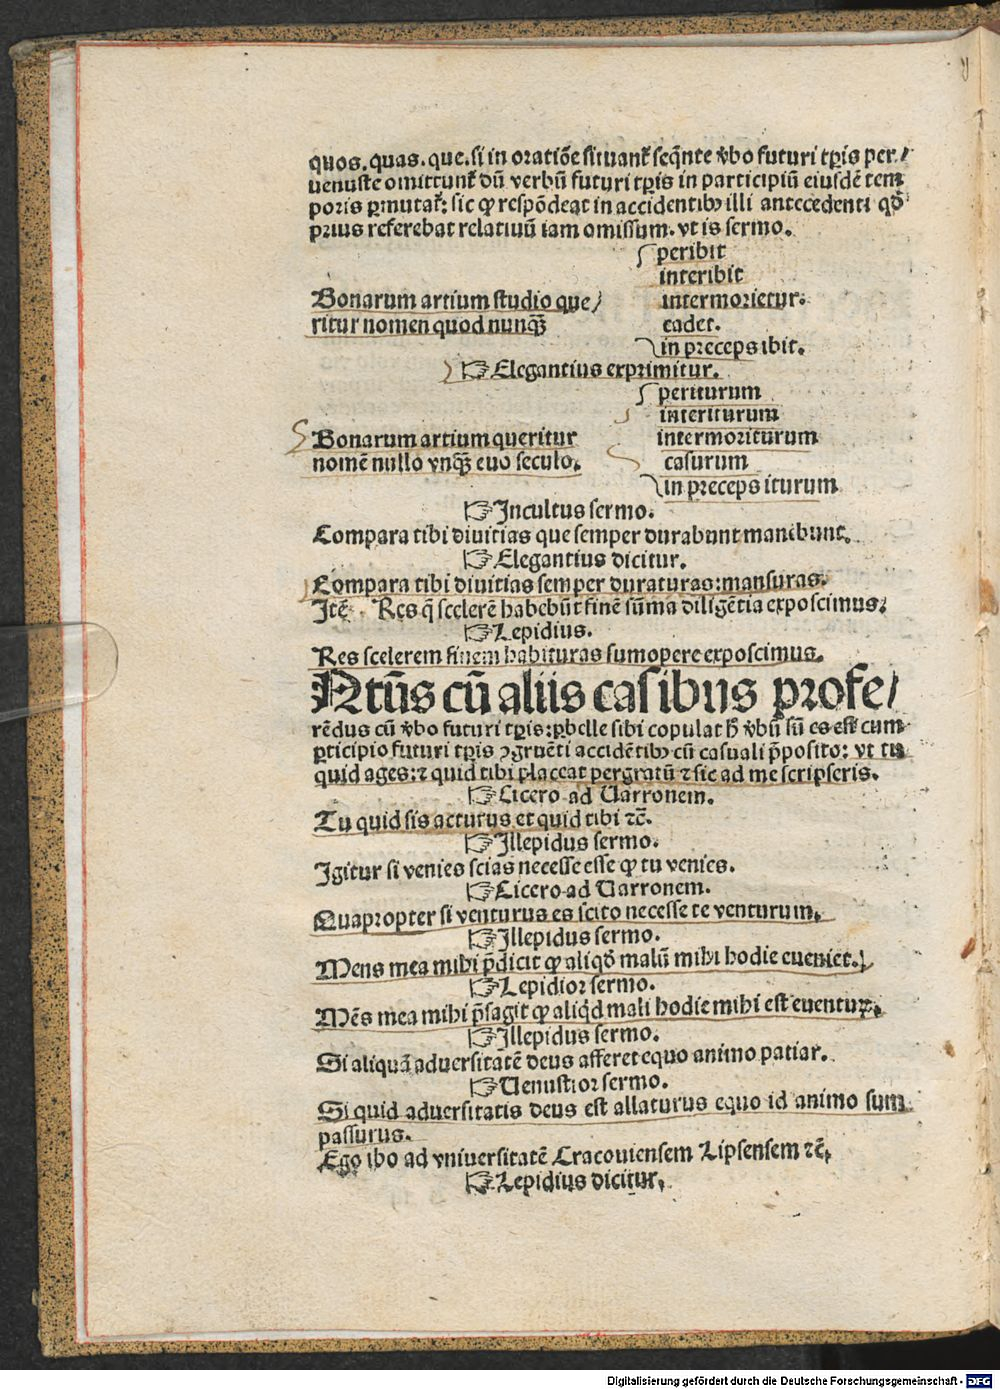 quos. quas. que. si in oratiõe situant᷑ seq̃nte v̾bo futuri tp̃is per/
uenuste omittunt᷑ dũ verbũ futuri tp̃is in participiũ eiusdẽ tem
poris ꝑmutat᷑: sic ꝙ respõdeat in accidentibꝰ illi antecedenti qd̾
prius referebat relatiuũ iam omissum. vt is sermo.
peribit
interibit
Bonarum artium studio que/ intermorietur.
ritur nomen quod nunq̃ꝫ cadet.
in preceps ibit.
☞ Elegantius exprimitur.
periturum
interiturum
Bonarum artium queritur intermoriturum
nomẽ nullo vnq̃ꝫ euo seculo. casurum
in preceps iturum
☞ Incultus sermo.
Compara tibi diuitias que semper durabunt manebunt.
☞ Elegantius dicitur.
Compara tibi diuitias semper duraturas: mansuras.
Itẽ. Res q̃ scelerẽ habebũt finẽ sũma diligẽtia exposcimus.
☞ Lepidius.
Res scelerem finem habituras sumopere exposcimus.
Ntũs cũ aliis casibus profe/
rẽdus cũ v̾bo futuri tp̃is: ꝑbelle sibi copulat h̾ v̾bũ sũ es est cum
ꝑticipio futuri tp̃is ꝯgruẽti accidẽtibꝰ cũ casuali p̃posito: vt tu
quid ages: ⁊ quid tibi placeat pergratũ ⁊ sic ad me scripseris.
☞ Cicero ad Uarronem.
Tu quid sis acturus et quid tibi ⁊c̃.
☞ Illepidus sermo.
Igitur si venies scias necesse esse ꝙ tu venies.
☞ Cicero ad Uarronem.
Quapropter si venturus es scito necesse te venturum.
☞ Illepidus sermo.
Mens mea mihi p̃dicit ꝙ aliqd̾ malũ mihi hodie eueniet.
☞ Lepidior sermo.
Mẽs mea mihi p̃sagit ꝙ aliqd̾ mali hodie mihi est euenturũ.
☞ Illepidus sermo.
Si aliquã aduersitatẽ deus afferet equo animo patiar.
☞ Uenustior sermo.
Si quid aduersitatis deus est allaturus equo id animo sum
passurus.
Ego ibo ad vniuersitatẽ Cracouiensem Lipsensem ⁊c̃.
☞ Lepidius dicitur.
Digitalisierung gefördert durch die Deutsche Forschungsgemeinschaft - DFG